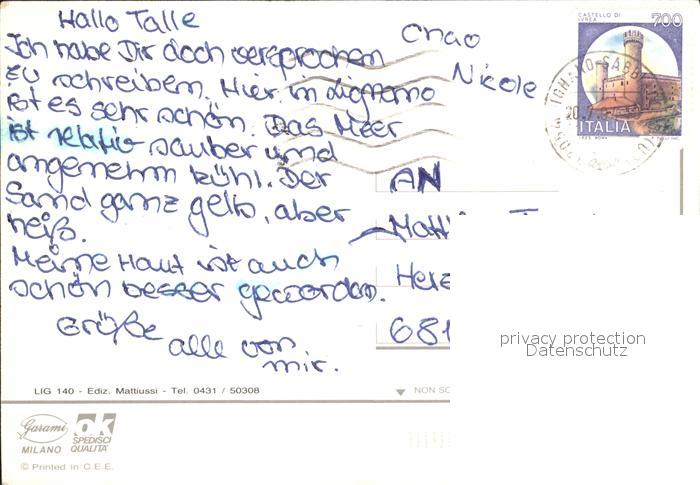 Hallo Talle
Ich habe Dir doch versprochen
zu schreiben. Hier in Lignano
ist es sehr schön. Das Meer
ist relativ sauber und
angenehm kühl. Der
Sand ganz gelb, aber
heiß.
Meine Haut ist auch
schön besser geworden.
Grüße
alle von
mir.
Ciao
Nicole
CASTELLO DI
IVREA
700
ITALIA
AN
681
privacy protection
Datenschutz
LIG 140 - Ediz. Mattiussi - Tel. 0431 / 50308
NON
Garami
MILANO
ok
SPEDISCI
QUALITA'
© Printed in C.E.E.